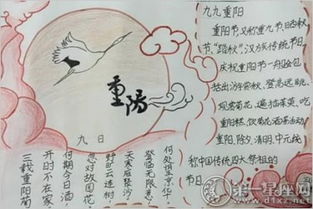 重阳
九九重阳
重阳节又称重九节晒秋
节,"踏秋",汉族传统节日
庆祝重阳节一般会包
括出游赏景、登高远眺、
观赏菊花、遍插茱萸、吃
重阳糕、饮菊花酒等活动
重阳、除夕、清明、中元统
称中国传统四大祭祖的
节日
九日
三载重阳菊
开时不在家
何期今日酒
忽对故园花
野旷云连树
天寒雁聚沙
登临无限意
何处望京华
第一星座网
www.d1xz.net